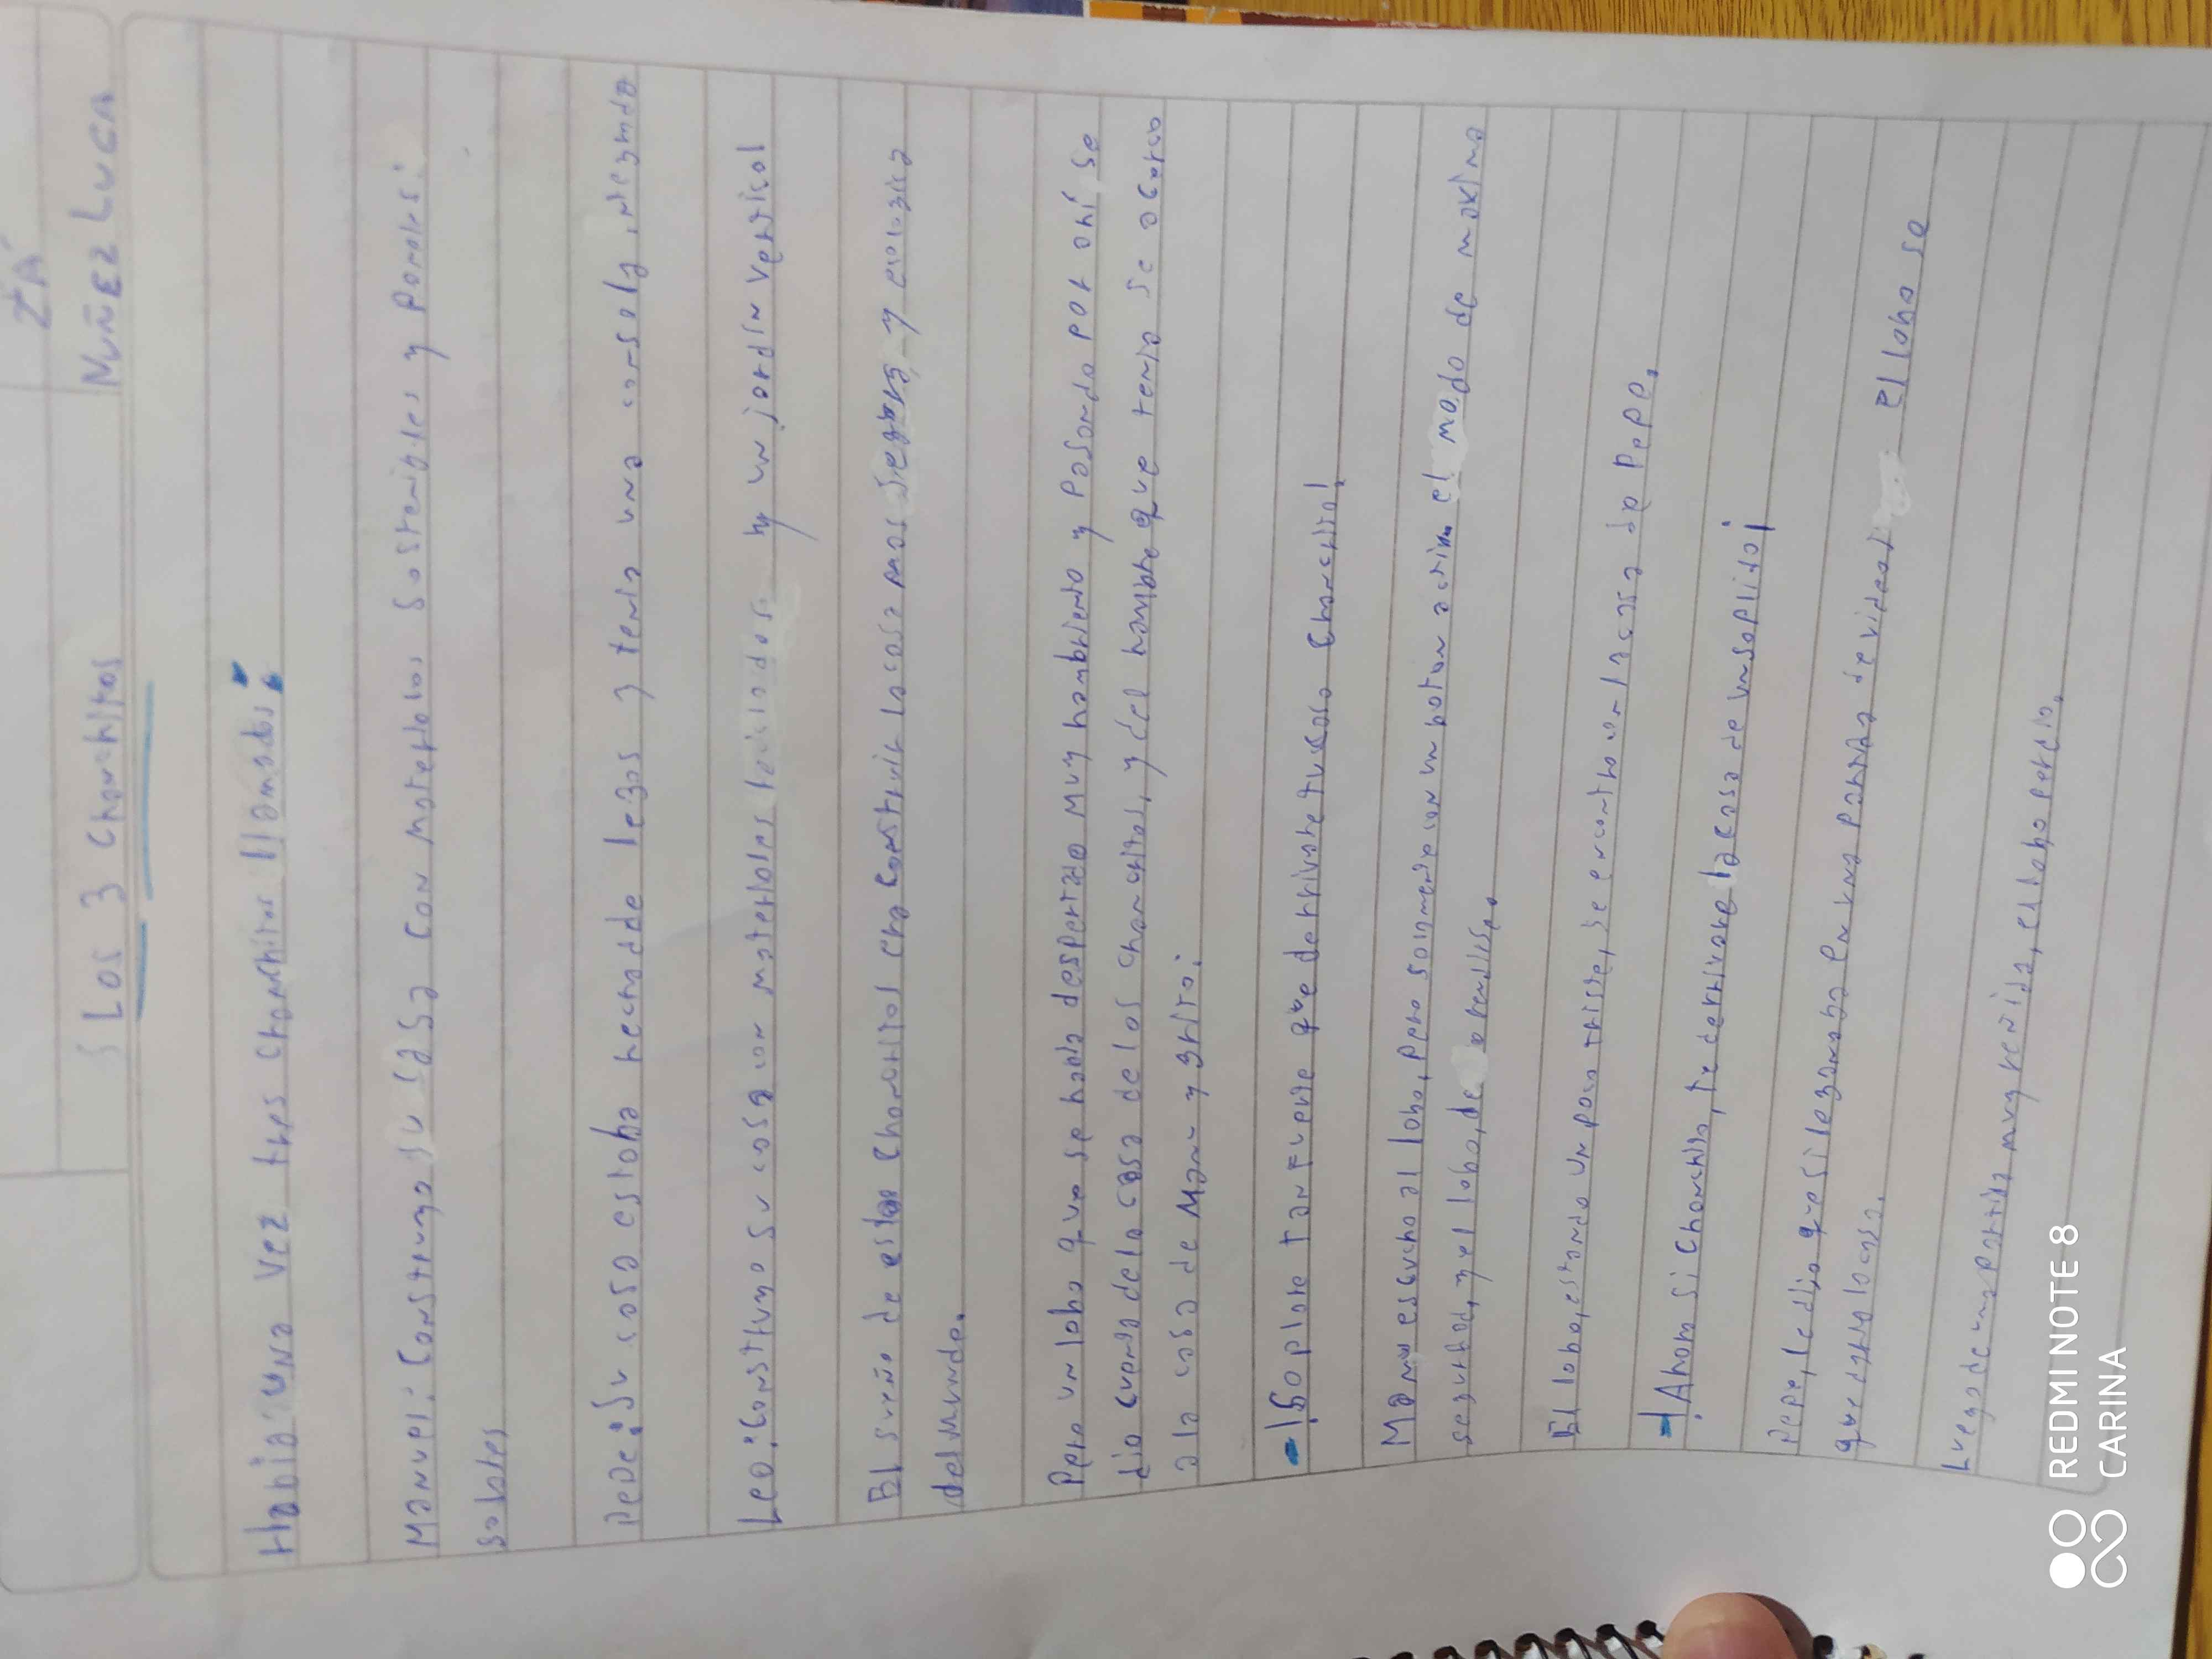 2A
MUÑEZ LUCA
LOS 3 Chanchitos
Habia una vez tres chanchitos llamados:
Manuel: Construyo su casa con materiales sostenibles y paneles
solares
Pepe: Su casa estaba hecha de legos y tenia una consola integrada
Leo: Construyo su casa con materiales reciclados y un jardin vertical
El sueño de estos chanchitos era construir la casa mas segura y ecologica
del munde.
Pero un lobo que se habia despertado muy hambriento y pasando por ahi, se
dio cuenta de la casa de los chanchitos, y del hambre que tenia se acerco
a la casa de Manu y grito:
-¡Soplare tan fuerte que derrivare tu casa chanchito!
Manu escucho al lobo, pero solamente con un boton activa el modo de maxima
seguridad, y el lobo, de
El lobo, estando un poco triste, se encontro con la casa de Pepe.
-¡Ahora si chanchito, te derrivare la casa de un soplido!
Pepe, le dijo que si le ganaba en una partida de videos el lobo se
quedaria la casa.
Luego de una partida muy reñida, el lobo perdio.
REDMI NOTE 8
CARINA